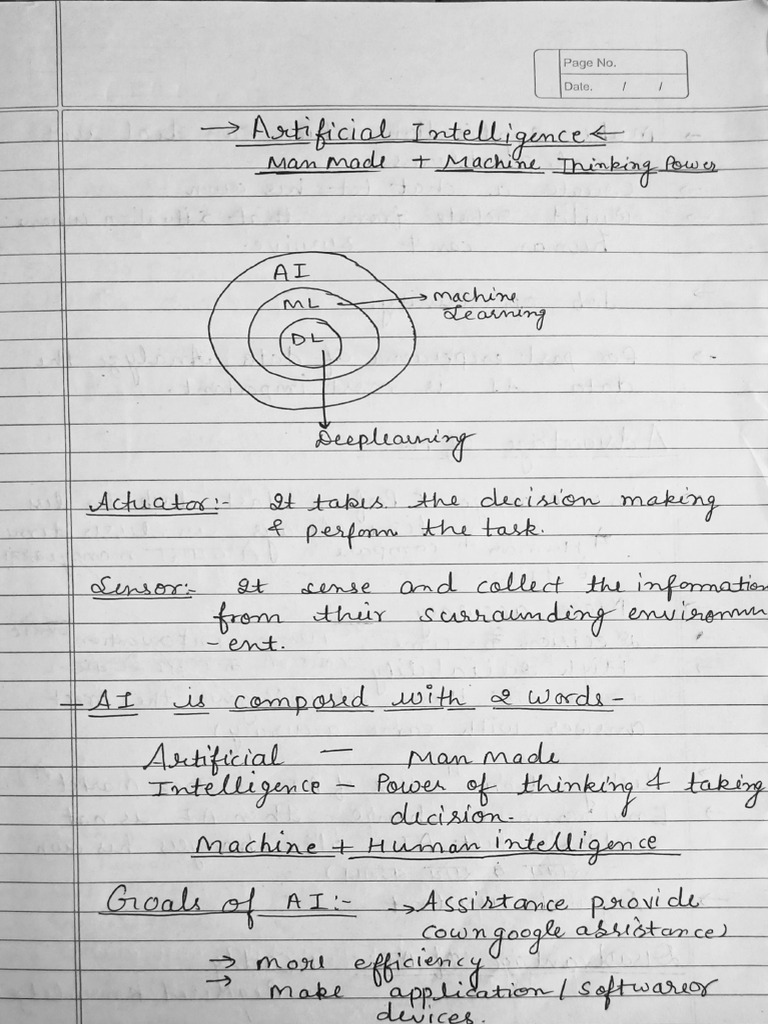 Page No.
Date. / /
→ Artificial Intelligence ←
Man Made + Machine Thinking Power
AI
ML → Machine Learning
DL
Deeplearning
Actuator:- It takes the decision making
& perform the task.
Sensor:- It sense and collect the information
from their surrounding environm
-ent.
– AI is composed with 2 words –
Artificial — Man made
Intelligence – Power of thinking & taking
decision.
Machine + Human intelligence
Goals of AI:- → Assistance provide
(own google assistance)
→ more efficiency
→ make application / software or
devices.